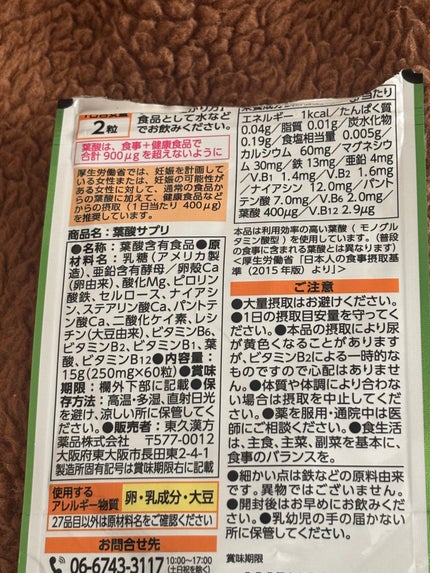 2粒
食品として水など
でお飲みください。
葉酸は、食事+健康食品で
合計900μgを超えないように
厚生労働省では、妊娠を計画して
いる女性または、妊娠の可能性が
ある女性に対して、通常の食品か
らの葉酸に加えて、健康食品など
からの摂取(1日当たり 400μg)
を推奨しています。
商品名:葉酸サプリ
●名称:葉酸含有食品●原
材料名:乳糖(アメリカ製
造)、亜鉛含有酵母/卵殻Ca
(卵由来)、酸化Mg、ピロリン
酸鉄、セルロース、ナイアシ
ン、ステアリン酸Ca、パントテン
酸Ca、二酸化ケイ素、レシ
チン(大豆由来)、ビタミンB6、
ビタミンB2、ビタミンB1、葉
酸、ビタミンB12●内容量:
15g(250mg×60粒)●賞味
期限:欄外下部に記載●保
存方法:高温・多湿、直射日光
を避け、涼しい所に保管してく
ださい。●販売者:東久漢方
薬品株式会社 〒577-0012
大阪府東大阪市長田東2-4-1
製造所固有記号は賞味期限右に記載
使用する
アレルギー物質
卵・乳成分・大豆
27品目以外は原材料名をご確認ください
お問合せ先
06-6743-3117
10:00〜17:00
(土日祝を除く)
エネルギー 1kcal/たんぱく質
0.04g/脂質 0.01g/炭水化物
0.19g/食塩相当量 0.005g
カルシウム 60mg/マグネシウ
ム30mg/鉄 13mg/亜鉛 4mg
/V.B1 1.4mg/V.B2 1.6mg
/ナイアシン 12.0mg/パント
テン酸 7.0mg/V.B6 2.0mg
葉酸 400μg/V.B12 2.9μg
本品は利用効率の高い葉酸(モノグル
タミン酸型)を使用しています。(普段
の食事に含まれる葉酸とは異なります)
<厚生労働省「日本人の食事摂取基準
(2015年版)」より>
ご注意
●大量摂取はお避けください。
●1日の摂取目安量を守ってく
ださい。●本品の摂取により尿
が黄色くなることがあります
が、ビタミンB2による一時的な
ものですので心配はありませ
ん。●体質や体調により合わな
い場合は摂取を中止してくだ
さい。●薬を服用・通院中は医
師にご相談ください。●食生活
は、主食、主菜、副菜を基本に、
食事のバランスを。
●細かい点は鉄などの原料由来
です。異物ではございません。
●開封後はお早めにお飲みくだ
さい。●乳幼児の手の届かない
所に保管してください。
賞味期限